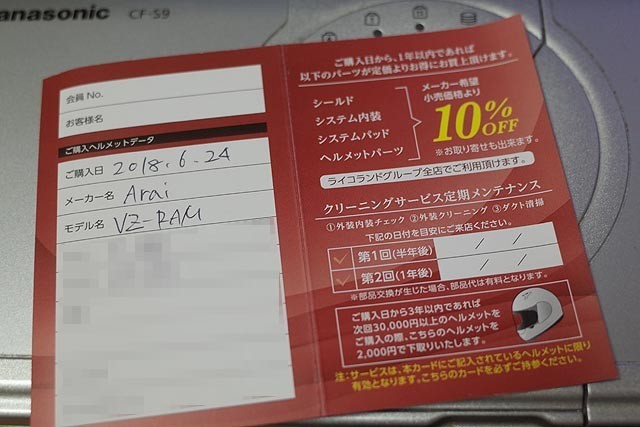 anasonic CF-S9
会員No.
お客様名
ご購入ヘルメットデータ
ご購入日 2018.6.24
メーカー名 Arai
モデル名 VZ-RAM
ご購入日から、1年以内であれば
以下のパーツが定価よりお得にお買上頂けます。
シールド
システム内装
システムパッド
ヘルメットパーツ
メーカー希望
小売価格より
10%
OFF
※お取り寄せも出来ます。
ライコランドグループ全店でご利用頂けます。
クリーニングサービス定期メンテナンス
①外装内装チェック ②外装クリーニング ③ダクト清掃
下記の日付を目安にご来店ください。
第1回(半年後) / /
第2回(1年後) / /
※部品交換が生じた場合、部品代は有料となります。
ご購入日から3年以内であれば
次回30,000円以上のヘルメットを
ご購入の際、こちらのヘルメットを
2,000円で下取りいたします。
注:サービスは、本カードにご記入されているヘルメットに限り
有効となります。こちらのカードを必ずご持参ください。